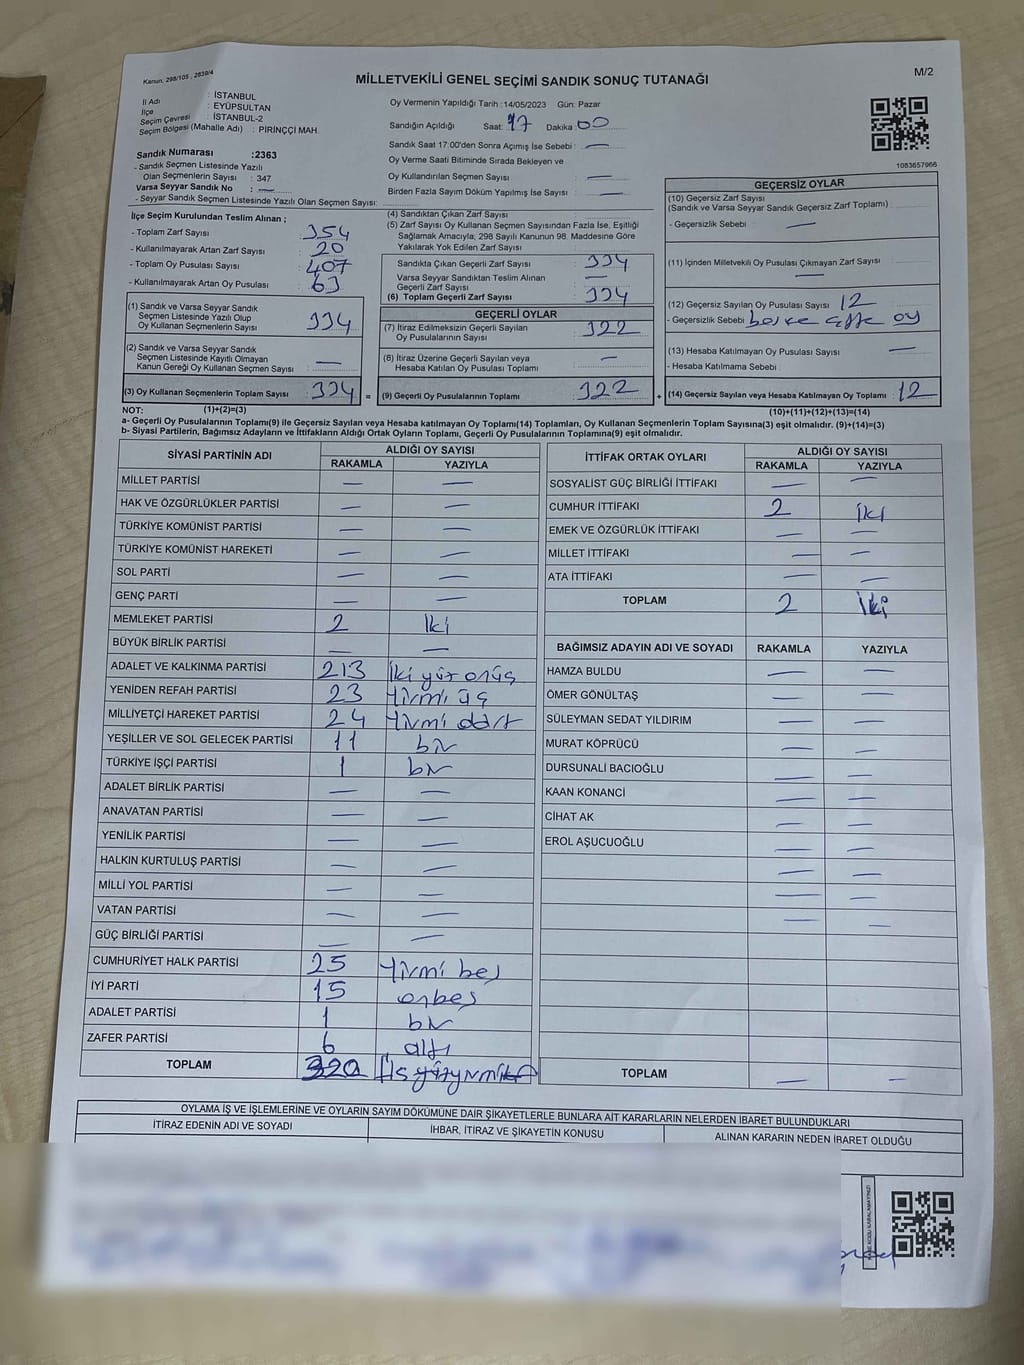 Kanun, 298/105 ; 2839/4
MİLLETVEKİLİ GENEL SEÇİMİ SANDIK SONUÇ TUTANAĞI
M/2
İl Adı : İSTANBUL
İlçe : EYÜPSULTAN
Seçim Çevresi : İSTANBUL-2
Seçim Bölgesi (Mahalle Adı) : PİRİNÇÇİ MAH.
Sandık Numarası :2363
- Sandık Seçmen Listesinde Yazılı
Olan Seçmenlerin Sayısı : 347
Varsa Seyyar Sandık No : —
- Seyyar Sandık Seçmen Listesinde Yazılı Olan Seçmen Sayısı:
Oy Vermenin Yapıldığı Tarih : 14/05/2023 Gün: Pazar
Sandığın Açıldığı Saat: 17 Dakika 00
Sandık Saat 17:00'den Sonra Açımış İse Sebebi : —
Oy Verme Saati Bitiminde Sırada Bekleyen ve
Oy Kullandırılan Seçmen Sayısı —
Birden Fazla Sayım Döküm Yapılmış İse Sayısı —
1083657966
İlçe Seçim Kurulundan Teslim Alınan ;
- Toplam Zarf Sayısı 354
- Kullanılmayarak Artan Zarf Sayısı : 20
- Toplam Oy Pusulası Sayısı : 407
- Kullanılmayarak Artan Oy Pusulası : 63
(1) Sandık ve Varsa Seyyar Sandık
Seçmen Listesinde Yazılı Olup
Oy Kullanan Seçmenlerin Sayısı 334
(2) Sandık ve Varsa Seyyar Sandık
Seçmen Listesinde Kayıtlı Olmayan
Kanun Gereği Oy Kullanan Seçmen Sayısı —
(3) Oy Kullanan Seçmenlerin Toplam Sayısı 334 =
(4) Sandıktan Çıkan Zarf Sayısı
(5) Zarf Sayısı Oy Kullanan Seçmen Sayısından Fazla İse, Eşitliği
Sağlamak Amacıyla; 298 Sayılı Kanunun 98. Maddesine Göre
Yakılarak Yok Edilen Zarf Sayısı
Sandıkta Çıkan Geçerli Zarf Sayısı 334
Varsa Seyyar Sandıktan Teslim Alınan
Geçerli Zarf Sayısı —
(6) Toplam Geçerli Zarf Sayısı 334
GEÇERLİ OYLAR
(7) İtiraz Edilmeksizin Geçerli Sayılan
Oy Pusulalarının Sayısı 322
(8) İtiraz Üzerine Geçerli Sayılan veya
Hesaba Katılan Oy Pusulası Toplamı —
(9) Geçerli Oy Pusulalarının Toplamı 322 +
GEÇERSİZ OYLAR
(10) Geçersiz Zarf Sayısı
(Sandık ve Varsa Seyyar Sandık Geçersiz Zarf Toplamı) :
- Geçersizlik Sebebi : —
(11) İçinden Milletvekili Oy Pusulası Çıkmayan Zarf Sayısı —
(12) Geçersiz Sayılan Oy Pusulası Sayısı 12
- Geçersizlik Sebebi oy
(13) Hesaba Katılmayan Oy Pusulası Sayısı —
- Hesaba Katılmama Sebebi :
(14) Geçersiz Sayılan veya Hesaba Katılmayan Oy Toplamı 12
NOT: (1)+(2)=(3) (10)+(11)+(12)+(13)=(14)
a- Geçerli Oy Pusulalarının Toplamı(9) ile Geçersiz Sayılan veya Hesaba katılmayan Oy Toplamı(14) Toplamları, Oy Kullanan Seçmenlerin Toplam Sayısına(3) eşit olmalıdır. (9)+(14)=(3)
b- Siyasi Partilerin, Bağımsız Adayların ve İttifakların Aldığı Ortak Oyların Toplamı, Geçerli Oy Pusulalarının Toplamına(9) eşit olmalıdır.
SİYASİ PARTİNİN ADI ALDIĞI OY SAYISI
RAKAMLA YAZIYLA
MİLLET PARTİSİ — —
HAK VE ÖZGÜRLÜKLER PARTİSİ — —
TÜRKİYE KOMÜNİST PARTİSİ — —
TÜRKİYE KOMÜNİST HAREKETİ — —
SOL PARTİ — —
GENÇ PARTİ — —
MEMLEKET PARTİSİ 2 İki
BÜYÜK BİRLİK PARTİSİ — —
ADALET VE KALKINMA PARTİSİ 213 İki yüz onüç
YENİDEN REFAH PARTİSİ 23 Yirmi üç
MİLLİYETÇİ HAREKET PARTİSİ 24 Yirmi dört
YEŞİLLER VE SOL GELECEK PARTİSİ 11 bir
TÜRKİYE İŞÇİ PARTİSİ 1 bir
ADALET BİRLİK PARTİSİ — —
ANAVATAN PARTİSİ — —
YENİLİK PARTİSİ — —
HALKIN KURTULUŞ PARTİSİ — —
MİLLİ YOL PARTİSİ — —
VATAN PARTİSİ — —
GÜÇ BİRLİĞİ PARTİSİ — —
CUMHURİYET HALK PARTİSİ 25 Yirmi beş
İYİ PARTİ 15 onbeş
ADALET PARTİSİ 1 bir
ZAFER PARTİSİ 6 altı
TOPLAM 320
İTTİFAK ORTAK OYLARI ALDIĞI OY SAYISI
RAKAMLA YAZIYLA
SOSYALİST GÜÇ BİRLİĞİ İTTİFAKI — —
CUMHUR İTTİFAKI 2 İki
EMEK VE ÖZGÜRLÜK İTTİFAKI — —
MİLLET İTTİFAKI — —
ATA İTTİFAKI — —
TOPLAM 2 İki
BAĞIMSIZ ADAYIN ADI VE SOYADI RAKAMLA YAZIYLA
HAMZA BULDU — —
ÖMER GÖNÜLTAŞ — —
SÜLEYMAN SEDAT YILDIRIM — —
MURAT KÖPRÜCÜ — —
DURSUNALİ BACIOĞLU — —
KAAN KONANCİ — —
CİHAT AK — —
EROL AŞUCUOĞLU — —
TOPLAM — —
OYLAMA İŞ VE İŞLEMLERİNE VE OYLARIN SAYIM DÖKÜMÜNE DAİR ŞİKAYETLERLE BUNLARA AİT KARARLARIN NELERDEN İBARET BULUNDUKLARI
İTİRAZ EDENİN ADI VE SOYADI İHBAR, İTİRAZ VE ŞİKAYETİN KONUSU ALINAN KARARIN NEDEN İBARET OLDUĞU